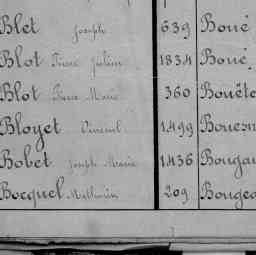 Blet Joseph 639 Boué
Blot Pierre Julien 1834 Boué
Blot Pierre Marie 360 Bouëte
Bloyet Vincent 1499 Bouesn
Bobet Joseph Marie 1436 Bougau
Bocquel Mathurin 209 Bougeo